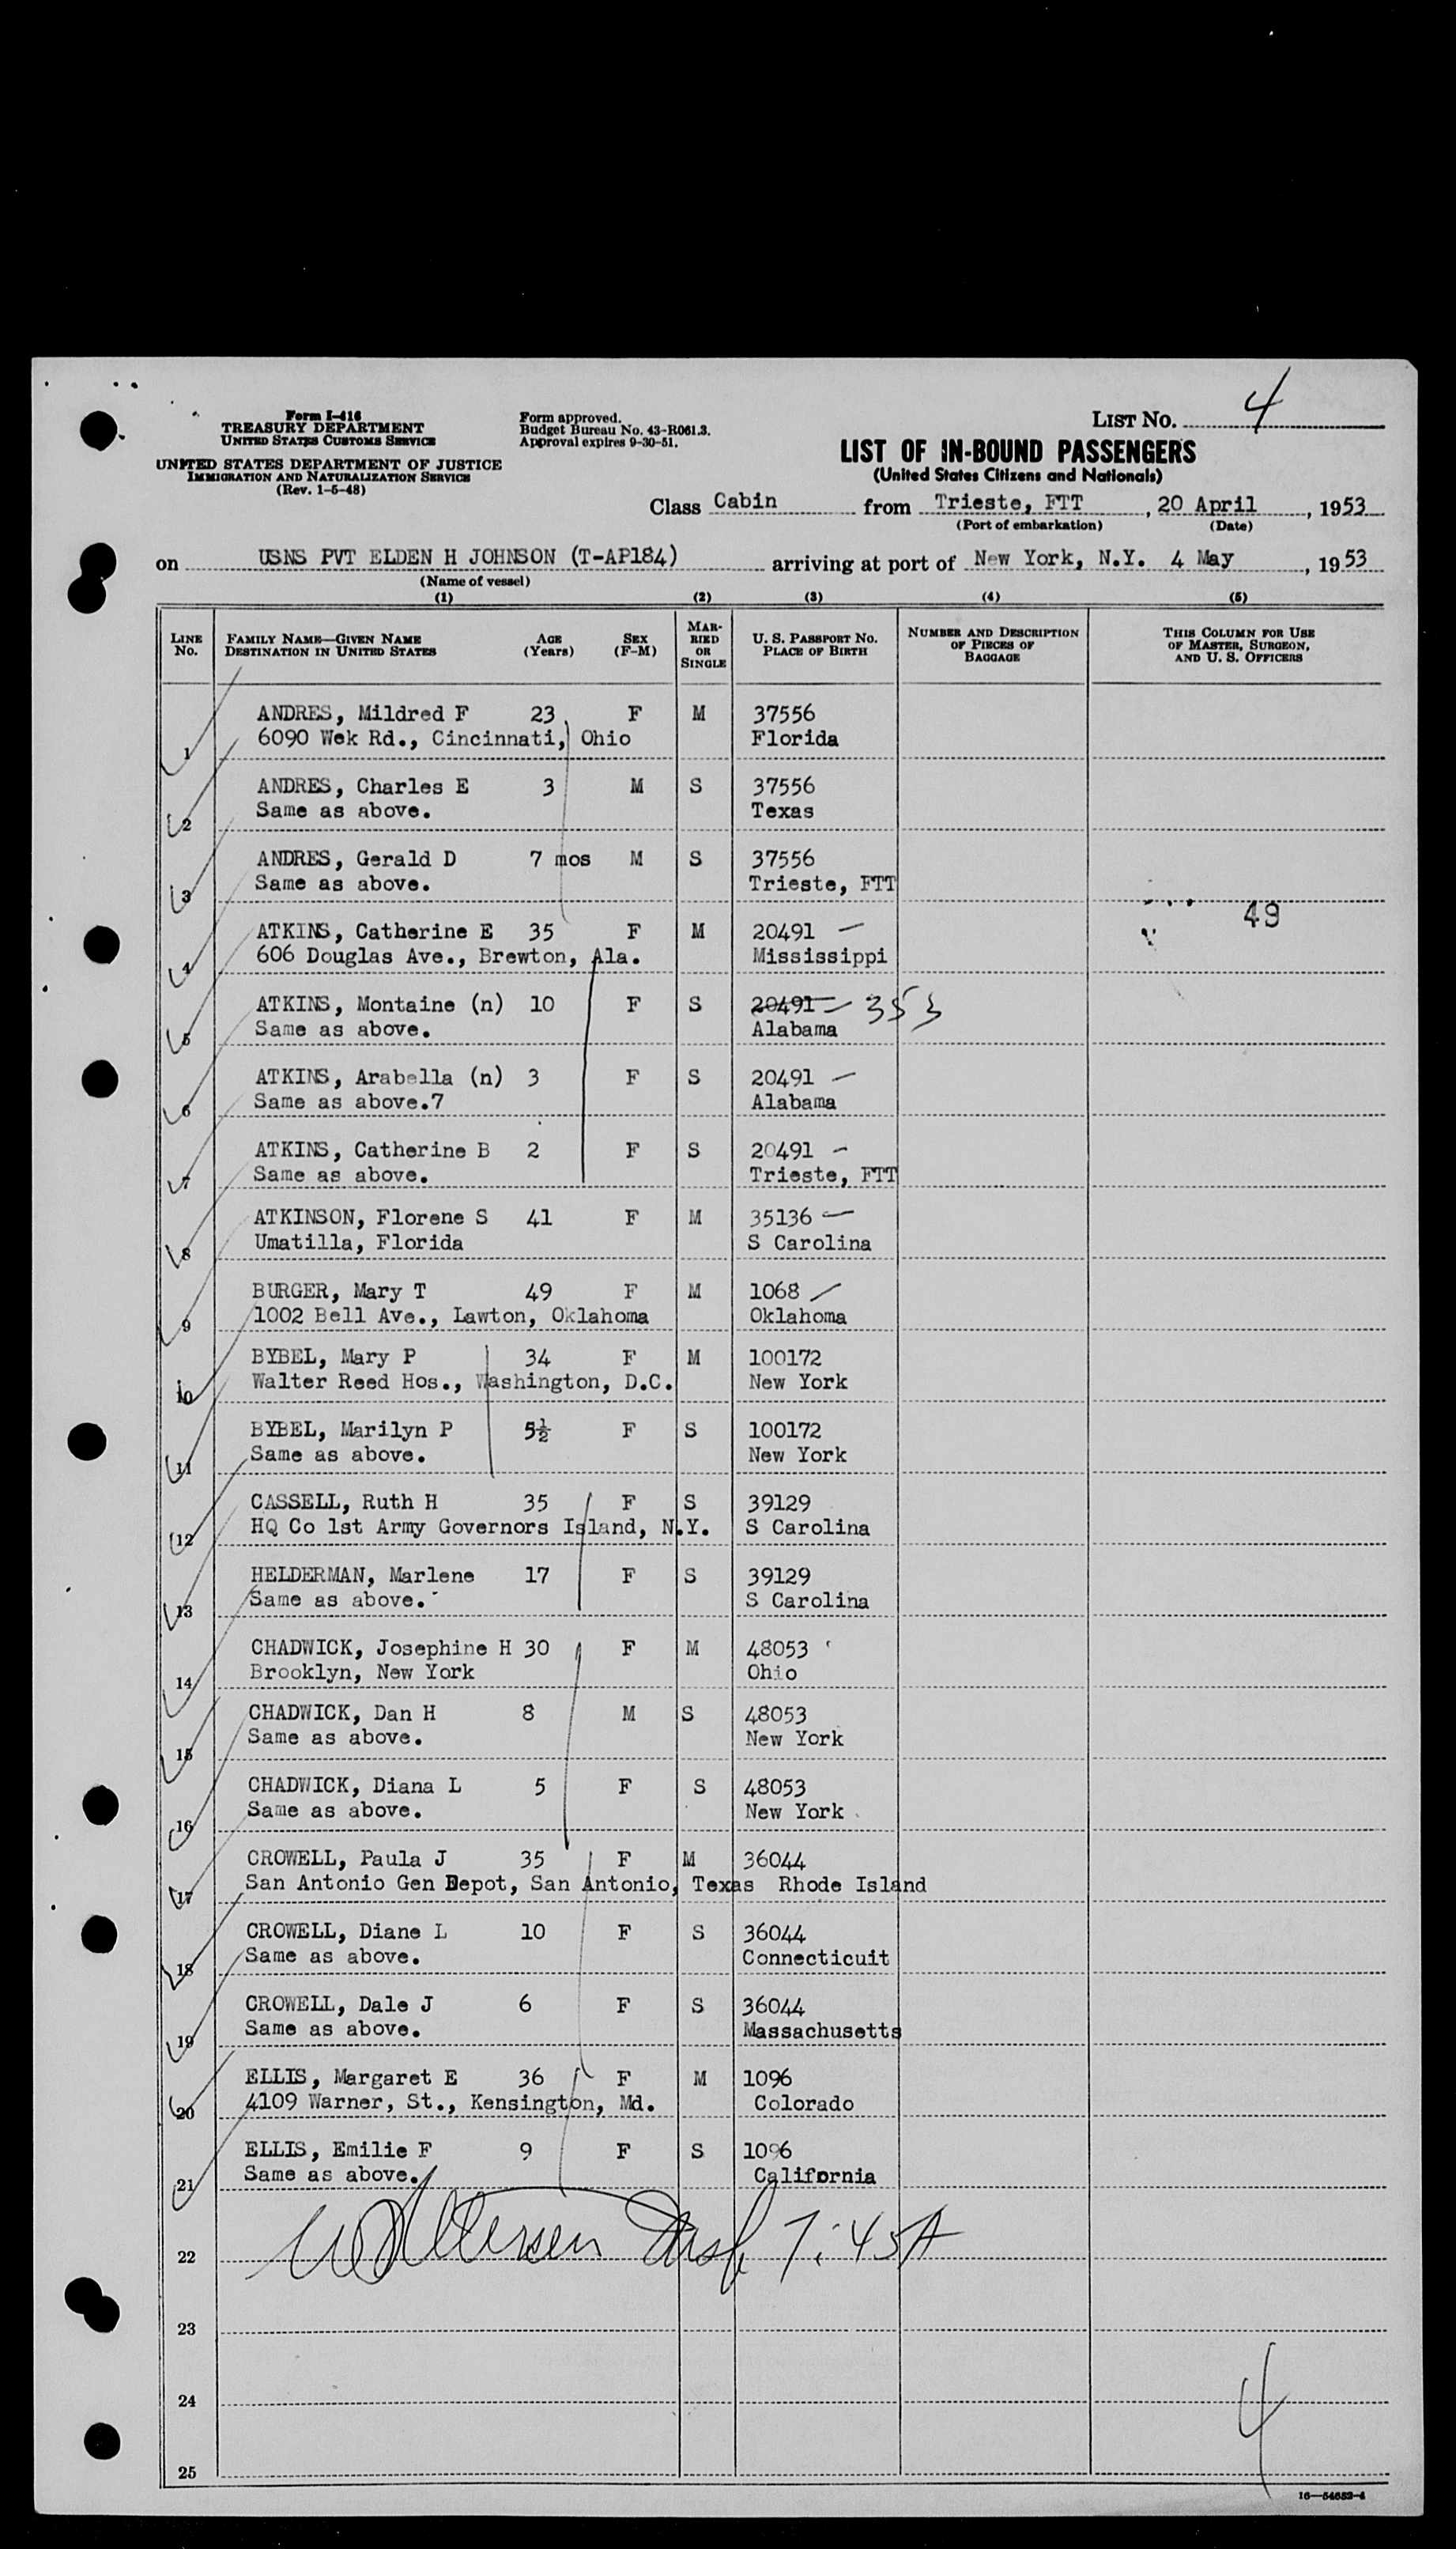 LIST No. 4
Form I-416
TREASURY DEPARTMENT
UNITED STATES CUSTOMS SERVICE
UNITED STATES DEPARTMENT OF JUSTICE
IMMIGRATION AND NATURALIZATION SERVICE
(Rev. 1-5-48)
Form approved.
Budget Bureau No. 43-R061.3.
Approval expires 9-30-51.
LIST OF IN-BOUND PASSENGERS
(United States Citizens and Nationals)
Class Cabin from Trieste, FTT, 20 April, 1953
(Port of embarkation) (Date)
on USNS PVT ELDEN H JOHNSON (T-AP184) arriving at port of New York, N.Y. 4 May, 1953
(Name of vessel)
(1) (2) (3) (4) (5)
LINE No. FAMILY NAME—GIVEN NAME DESTINATION IN UNITED STATES AGE (Years) SEX (F-M) MARRIED OR SINGLE U. S. PASSPORT No. PLACE OF BIRTH NUMBER AND DESCRIPTION OF PIECES OF BAGGAGE THIS COLUMN FOR USE OF MASTER, SURGEON, AND U. S. OFFICERS
ANDRES, Mildred F 23 F M 37556
1 6090 Wek Rd., Cincinnati, Ohio Florida
ANDRES, Charles E 3 M S 37556
2 Same as above. Texas
ANDRES, Gerald D 7 mos M S 37556
3 Same as above. Trieste, FTT
49
ATKINS, Catherine E 35 F M 20491 —
4 606 Douglas Ave., Brewton, Ala. Mississippi
ATKINS, Montaine (n) 10 F S 20491 — 353
5 Same as above. Alabama
ATKINS, Arabella (n) 3 F S 20491 —
6 Same as above.7 Alabama
ATKINS, Catherine B 2 F S 20491 -
7 Same as above. Trieste, FTT
ATKINSON, Florene S 41 F M 35136 —
8 Umatilla, Florida S Carolina
BURGER, Mary T 49 F M 1068
9 1002 Bell Ave., Lawton, Oklahoma Oklahoma
BYBEL, Mary P 34 F M 100172
10 Walter Reed Hos., Washington, D.C. New York
BYBEL, Marilyn P 5½ F S 100172
11 Same as above. New York
CASSELL, Ruth H 35 F S 39129
12 HQ Co 1st Army Governors Island, N.Y. S Carolina
HELDERMAN, Marlene 17 F S 39129
13 Same as above. S Carolina
CHADWICK, Josephine H 30 F M 48053
14 Brooklyn, New York Ohio
CHADWICK, Dan H 8 M S 48053
15 Same as above. New York
CHADWICK, Diana L 5 F S 48053
16 Same as above. New York
CROWELL, Paula J 35 F M 36044
17 San Antonio Gen Depot, San Antonio, Texas Rhode Island
CROWELL, Diane L 10 F S 36044
18 Same as above. Connecticuit
CROWELL, Dale J 6 F S 36044
19 Same as above. Massachusetts
ELLIS, Margaret E 36 F M 1096
20 4109 Warner, St., Kensington, Md. Colorado
ELLIS, Emilie F 9 F S 1096
21 Same as above. California
7:45A
22
23
24
4
25
16—54652-4